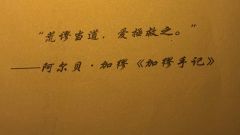 “荒谬当道，爱拯救之。”
——阿尔贝·加缪《加缪手记》